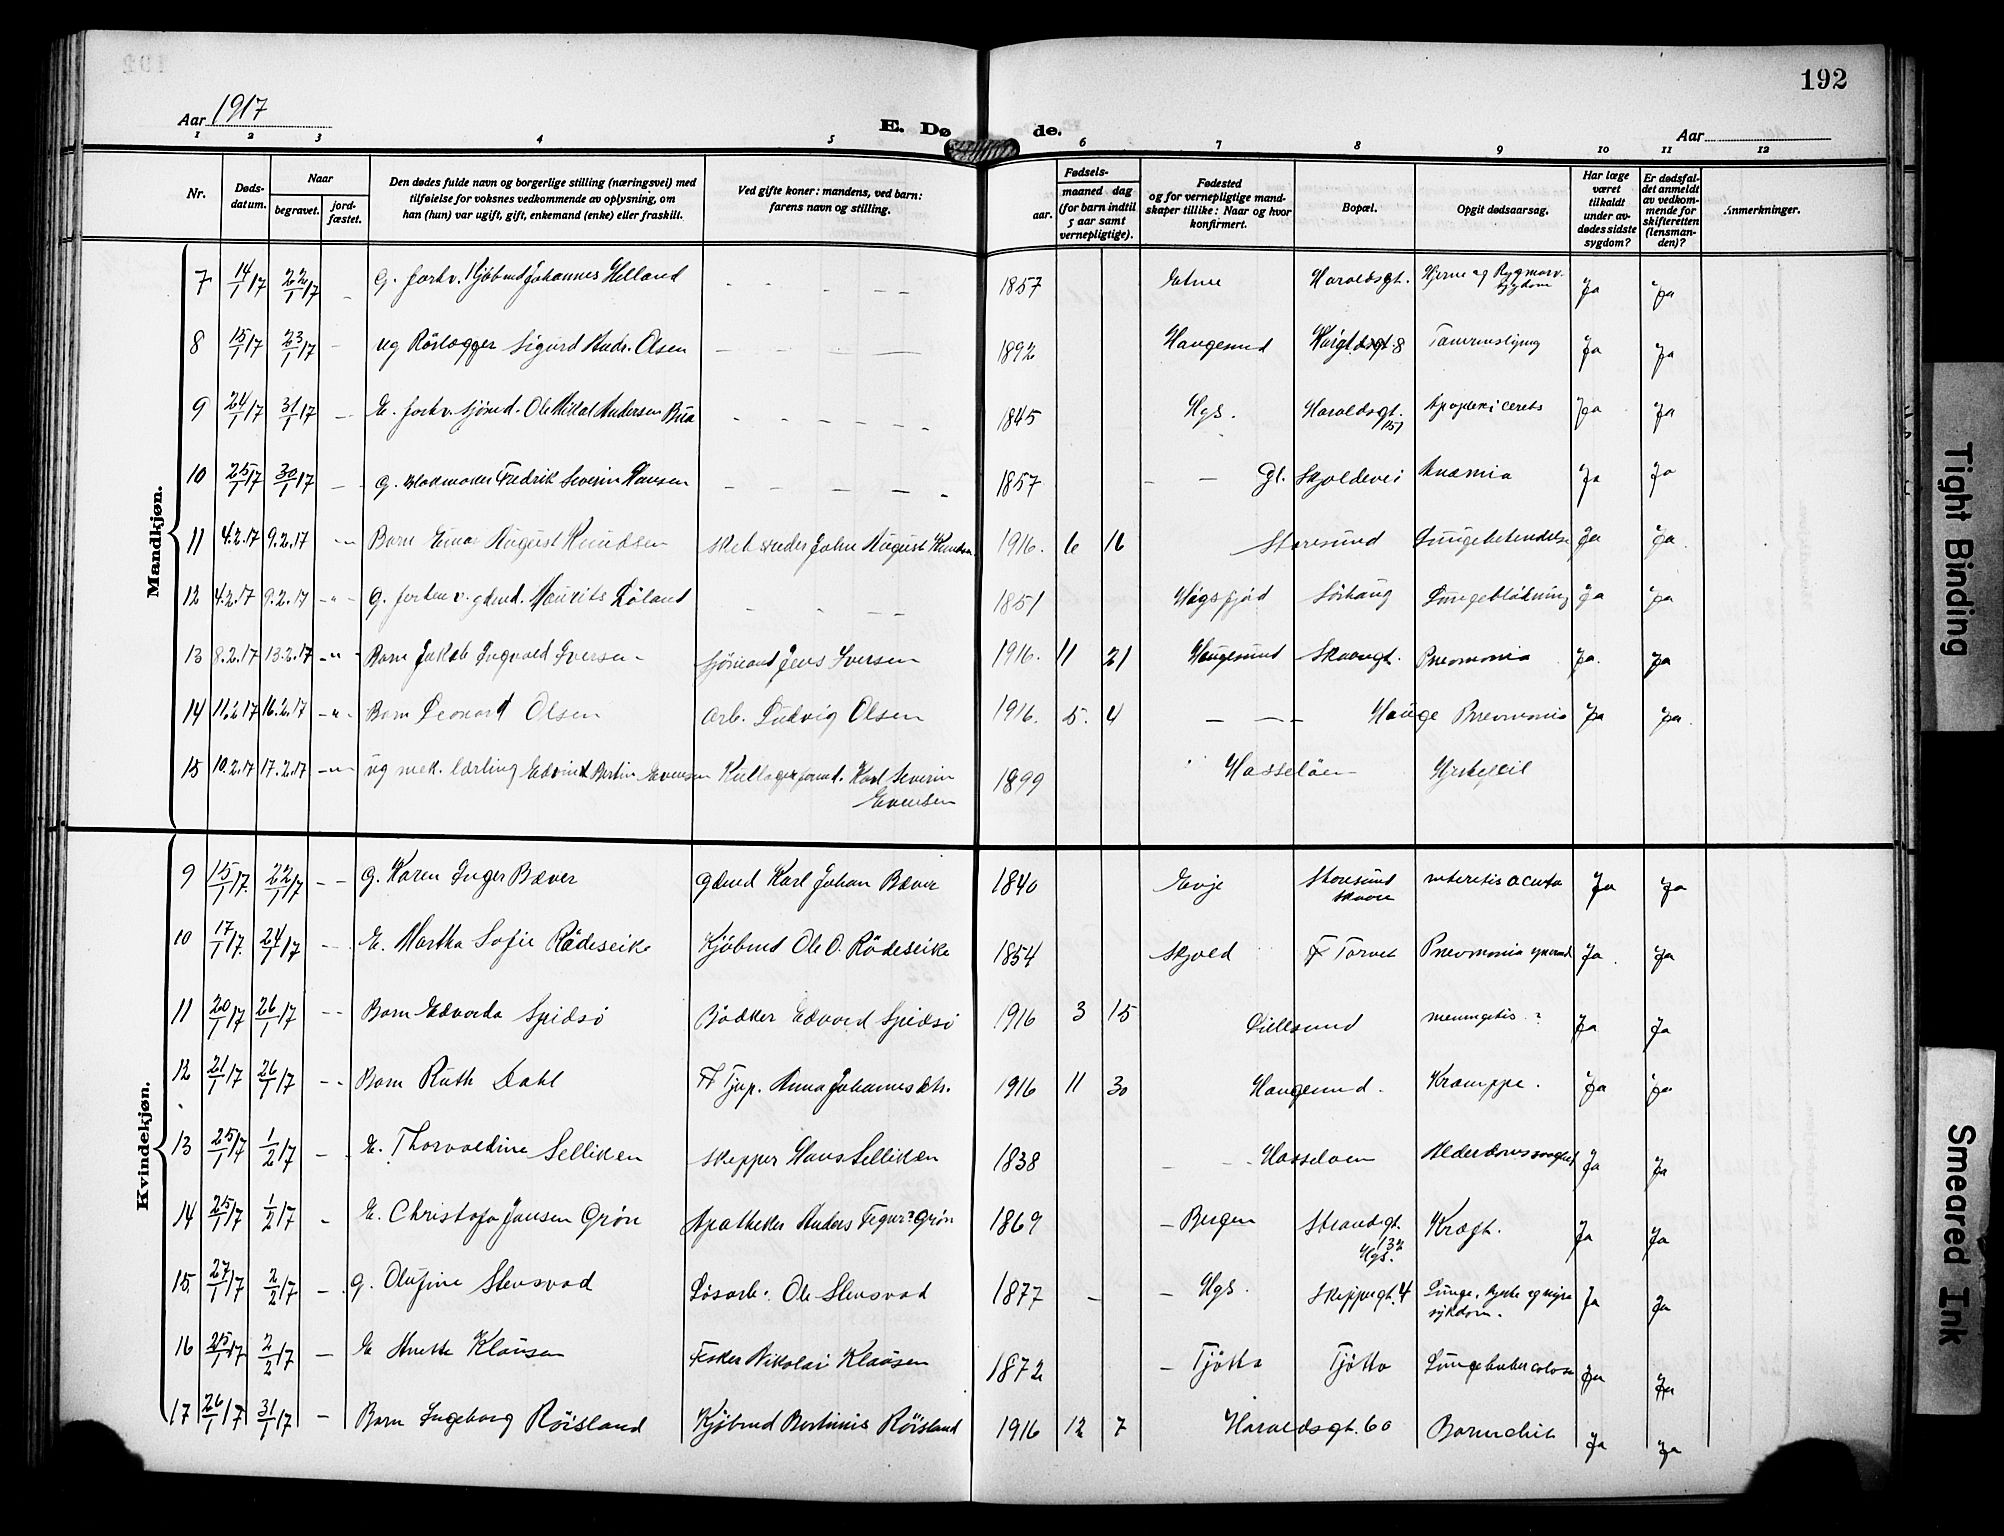 192
Aar 1917
E. Dø de.
Aar
1 2 3 4 5 6 7 8 9 10 11 12
Nr.
Døds-
datum.
Naar
begravet.
jord-
fæstet.
Den dødes fulde navn og borgerlige stilling (næringsvei) med
tilføielse for voksnes vedkommende av oplysning, om
han (hun) var ugift, gift, enkemand (enke) eller fraskilt.
Ved gifte koner: mandens, ved barn:
farens navn og stilling.
Fødsels-
aar.
maaned dag
(for barn indtil
5 aar samt
vernepligtige).
Fødested
og for vernepligtige mand-
skaper tillike: Naar og hvor
konfirmert.
Bopæl.
Opgit dødsaarsag.
Har læge
været
tilkaldt
under av-
dødes sidste
sygdom?
Er dødsfal-
det anmeldt
av vedkom-
mende for
skifteretten
(lensman-
den)?
Anmerkninger.
Mandkjøn.
7 14/1 17 22/1 17 - G. forhv. Kjøbmd Johannes Helland - - - - - 1857 Etne Haraldsgt. Hjerne og Rygmarv- Ja Ja
sygdom
8 15/1 17 23/1 17 - ug Rörlægger Sigurd Andr. Olsen - - - - - 1892 Haugesund 8 Ja Ja
9 24/1 17 31/1 17 - E. forhv. Sjömd. Ole Mikal Andersen - - - - - 1845 Hgs. Haraldsgt. Ja Ja
151
10 25/1 17 30/1 17 - g. Fredrik Severin Hansen - - - - - 1857 - - Gl. Skjoldevei Anæmia Ja Ja
11 4.2.17 9.2.17 - - Barn Einar August Knudsen John August 1916. 6 16 Storesund Lungebetendelse Ja Ja
12 4.2.17 9.2.17 - " - g. gdmd. Mourits Döland - - - 1851 Sörhaug Lungeblödning Ja Ja
13 8.2.17 13.2.17 - " - Barn Jakob Ingvald Iversen - Sjömand Jens Iversen 1916. 11 21 Haugesund Skaregt. Pneomonia Ja. Ja
14 11.2.17 16.2.17 - " - Barn Leonard Olsen Arb. Ludvig Olsen 1916. 5. 4 - - - Hauge Pneumonia Ja Ja.
15 10.2.17 17.2.17 - " - ug mek. lærling Edvind Bertin Evensen Karl Severin 1899 Hasseløen Hjertefeil
Evensen
Kvindekjøn.
9 15/1 17. 22/1 17 - - G. Karen Inger Bæver gdmd Karl Johan Bæver 1840 Evje Storesund acuta Ja Ja
skaare
10 17/1 17. 24/1 17 - - E. Martha Sofie Rödeseike Kjöbmd Ole O. Rödeseike 1854 Skjold Torvet Pneomonia Ja. Ja
11 20/1 17 26/1 17 - - Barn Edvarda Spidsö Bödker Edvard Spidsö 1916 3 15 Lillesund meningitis ? Ja Ja
12 21/1 17 26/1 17 - - Barn Ruth Dahl Tjap. Anna Johannesdtr. 1916 11 30 Haugesund. Krampe. Ja Ja
13 25/1 17 1/2 17 - - E. Thorvaldine Selliken skipper Hans Selliken 1838 - - Hasseløen Alderdomssvaghed Ja Ja
14 25/1 17 1/2 17 - E. Christofa Jansen Grön Apotheker Anders Grön 1869 - Bergen Strandgt. Kræft. Ja Ja
132
Hgs.
15. 27/1 17 2/2 17 - g. Olufine Stensvad Lösarb. Ole Stensvad 1877 - - Hgs. Skippergt. 4 Lunge, Ja Ja
sykdom.
16 25/1 17 2/2 17 - E Anette Klausen Fisker Nikolai Klausen 1872 - Tjötta Tjötta Lungetubercolose Ja Ja
17 26/1 17 31/1 17 - Barn Ingeborg Röisland Kjöbmd Bertinius Röisland 1916 12 7 Haraldsgt. 60 Ja Ja
Tight Binding
Smeared Ink